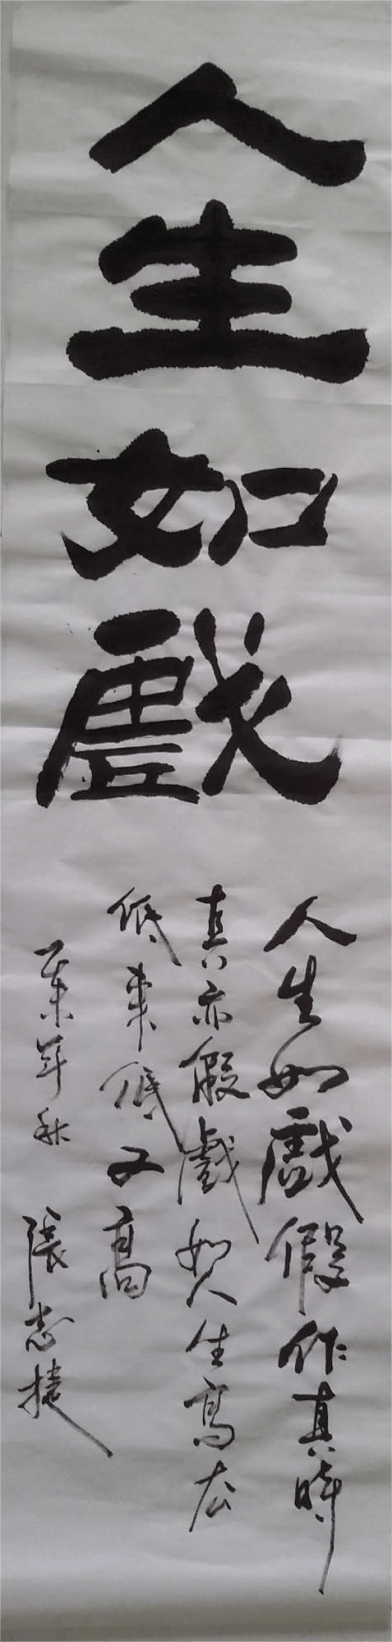 人生如戲
人生如戲假作真時
真亦假戲如人生高去
低來低又高
乙未年秋 張志捷